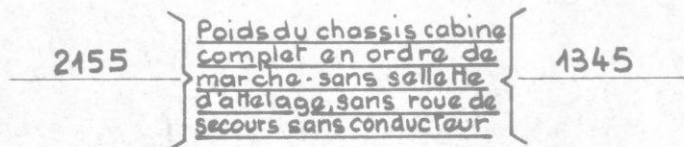 2155
Poids du chassis cabine
complet en ordre de
marche. sans sellette
d'attelage, sans roue de
secours sans conducteur
1345